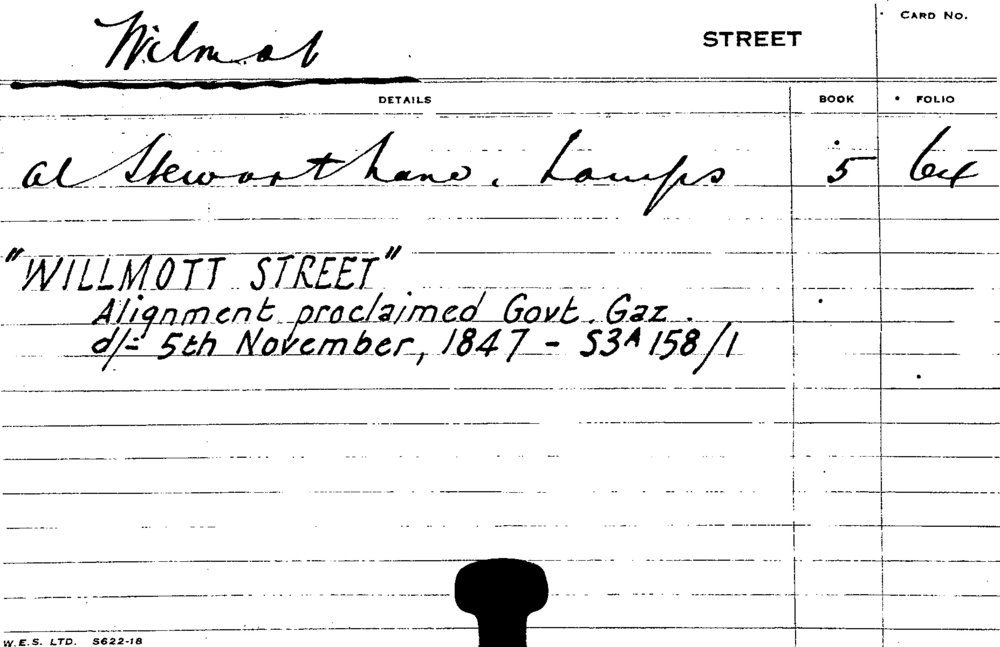 Wilmot STREET CARD No.
DETAILS BOOK FOLIO
at Stewart Lane. Lamps 5 64
"WILLMOTT STREET"
Alignment proclaimed Govt. Gaz.
d/= 5th November, 1847 - S3A 158/1
W.E.S. LTD. S622-18